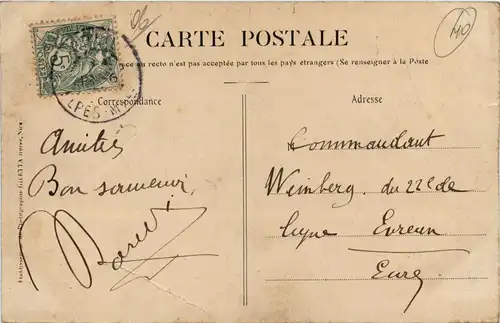 06
40
CARTE POSTALE
ce au recto n'est pas acceptée par tous les pays étrangers (Se renseigner à la Poste
Correspondance
Adresse
Amitiés
Bon souvenir,
Commandant
Weinberg du 22e de
ligne Evreux
Eure
ALPES-M
5